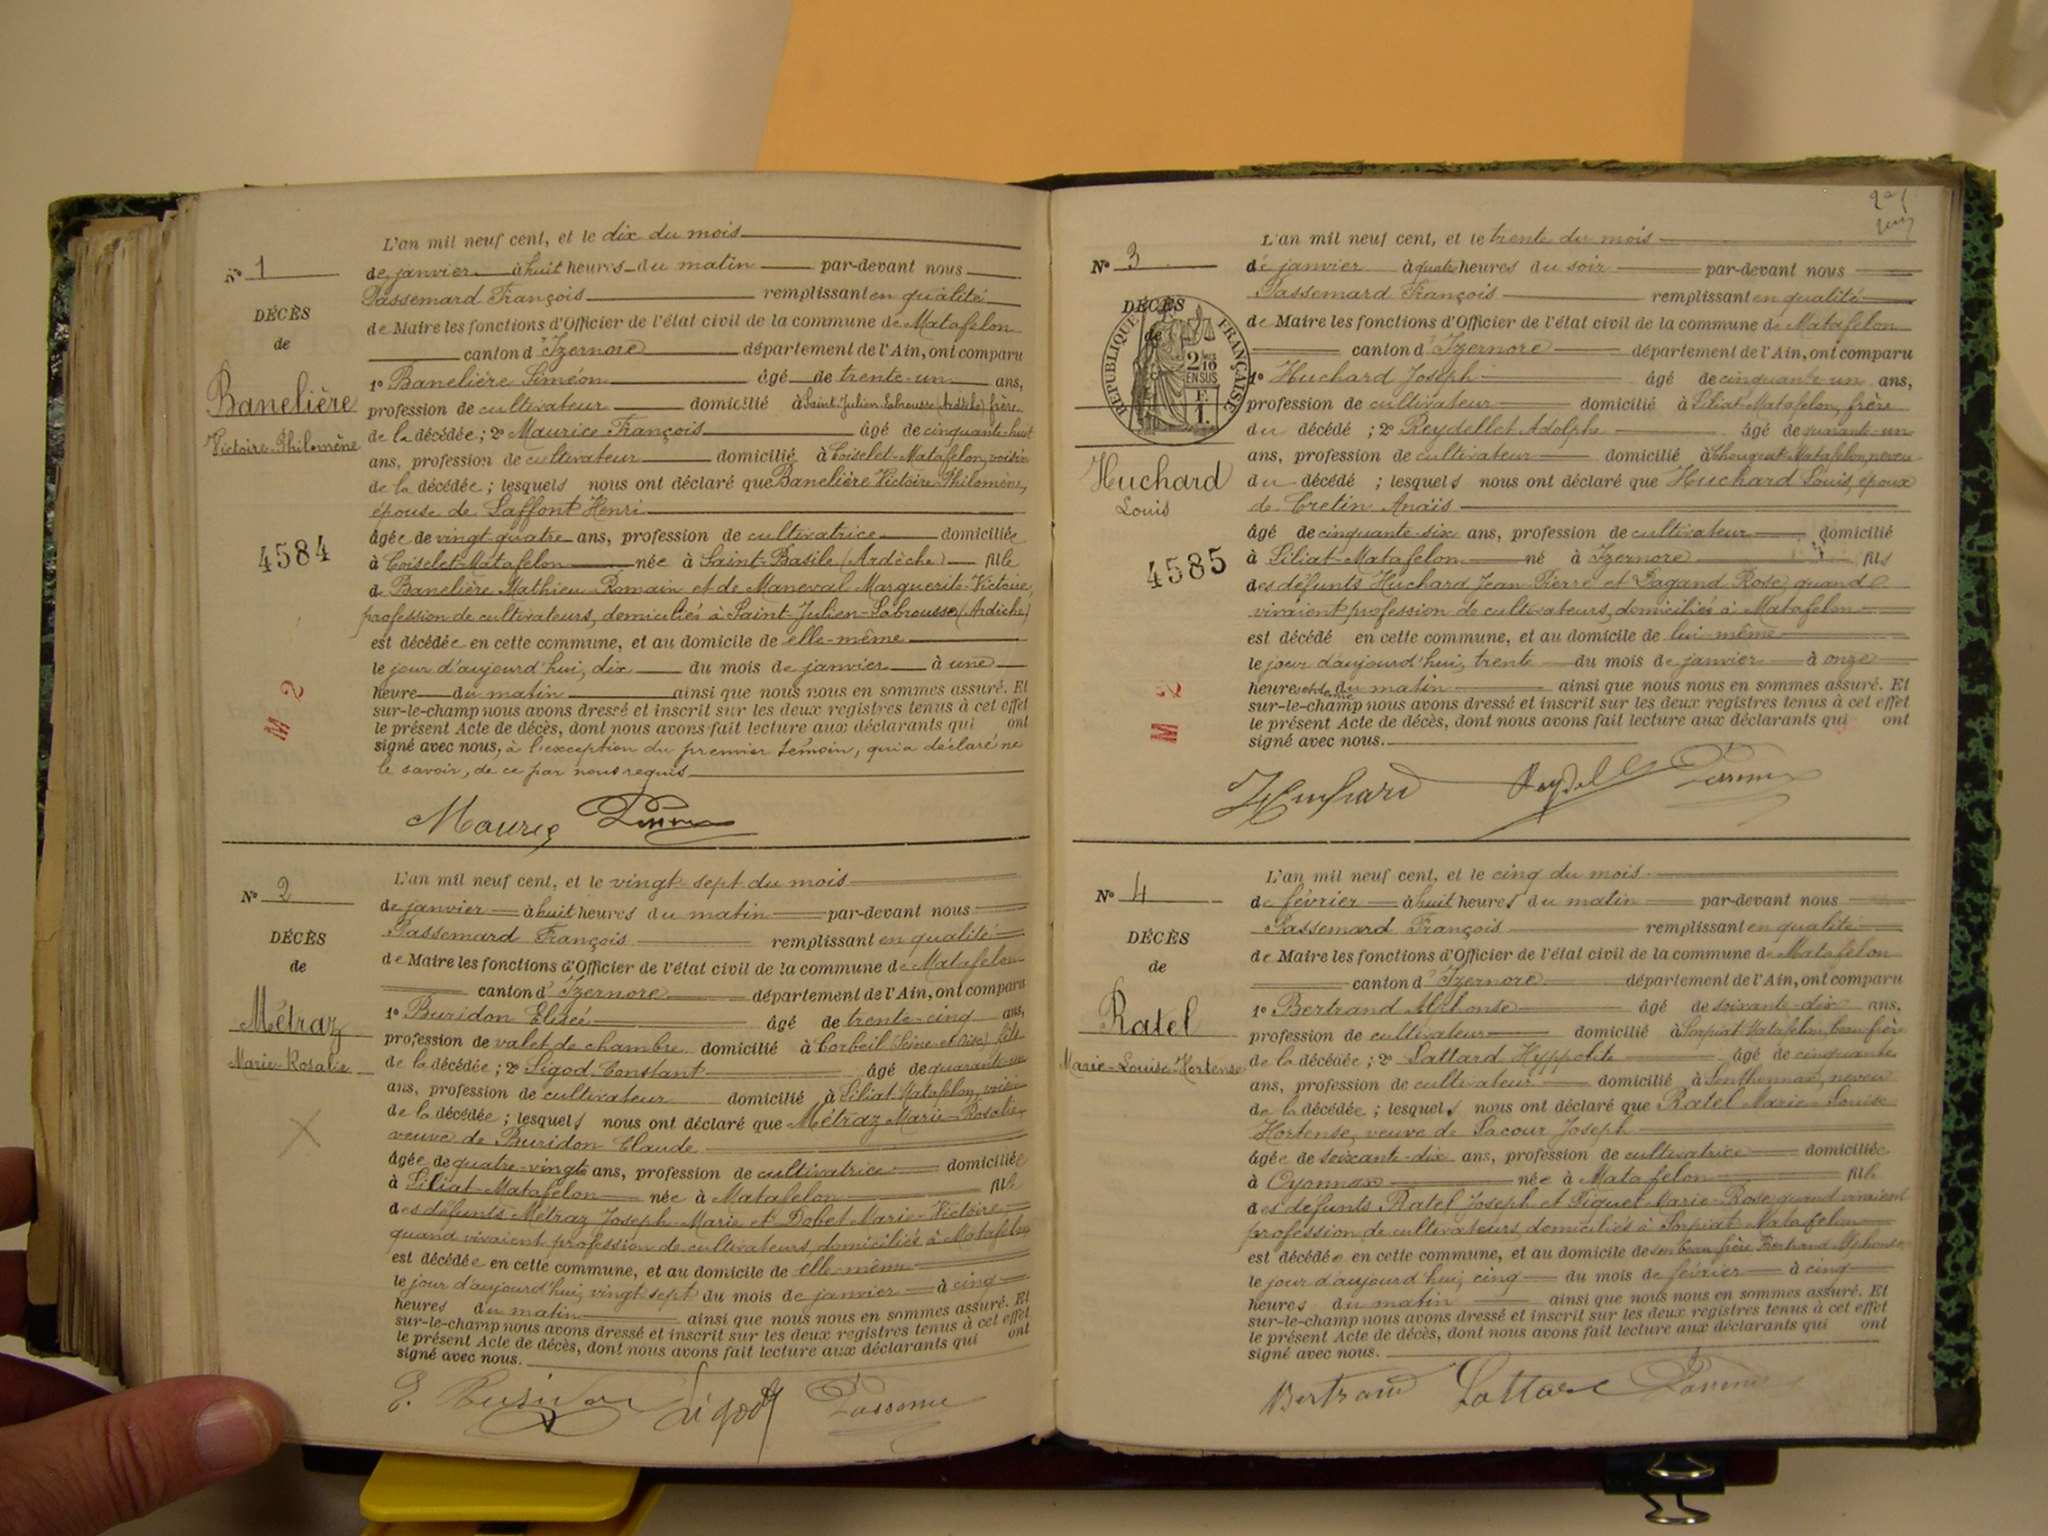 L'an mil neuf cent, et le dix du mois
N° 1
de janvier à huit heures du matin par-devant nous
Passemard François remplissant en qualité
DÉCÈS
de Maire les fonctions d'Officier de l'état civil de la commune de Matafelon
de
canton d'Izernore département de l'Ain, ont comparu
Banelière
1° Banelière Siméon âgé de trente-un ans,
profession de cultivateur domicilié à Saint-Julien-Labrousse (Ardèche) frère
Victoire-Philomène
de la décédée ; 2° Maurice François âgé de cinquante-huit
ans, profession de cultivateur domicilié à Coiselet-Matafelon, voisin
de la décédée ; lesquels nous ont déclaré que Banelière Victoire-Philomène,
épouse de Laffont Henri
âgée de vingt-quatre ans, profession de cultivatrice domiciliée
4584
à Coiselet-Matafelon née à Saint-Basile (Ardèche) fille
de Banelière Mathieu Romain et de Maneval Marguerite-Victoire,
profession de cultivateurs, domiciliés à Saint-Julien-Labrousse (Ardèche)
est décédée en cette commune, et au domicile de elle-même
le jour d'aujourd'hui, dix du mois de janvier à une
M 2
heure du matin ainsi que nous nous en sommes assuré. Et
sur-le-champ nous avons dressé et inscrit sur les deux registres tenus à cet effet
le présent Acte de décès, dont nous avons fait lecture aux déclarants qui ont
signé avec nous, à l'exception du premier témoin, qui a déclaré ne
le savoir, de ce par nous requis
Maurice
L'an mil neuf cent, et le vingt-sept du mois
N° 2
de janvier à huit heures du matin par-devant nous
Passemard François remplissant en qualité
DÉCÈS
de Maire les fonctions d'Officier de l'état civil de la commune de Matafelon
de
canton d'Izernore département de l'Ain, ont comparu
Métraz
1° Buridon Elisée âgé de trente-cinq ans,
profession de valet de chambre domicilié à Corbeil (Seine-et-Oise) fils
Marie-Rosalie
de la décédée ; 2° Sigod Constant âgé de quarante-un
ans, profession de cultivateur domicilié à Siliat-Matafelon, voisin
de la décédée ; lesquels nous ont déclaré que Métraz Marie-Rosalie
veuve de Buridon Claude
âgée de quatre-vingts ans, profession de cultivatrice domiciliée
à Siliat-Matafelon née à Matafelon fille
des défunts Métraz Joseph-Marie et Dobet Marie-Victoire
quand vivaient profession de cultivateurs, domiciliés à Matafelon
est décédée en cette commune, et au domicile de elle-même
le jour d'aujourd'hui, vingt-sept du mois de janvier à cinq
heures du matin ainsi que nous nous en sommes assuré. Et
sur-le-champ nous avons dressé et inscrit sur les deux registres tenus à cet effet
le présent Acte de décès, dont nous avons fait lecture aux déclarants qui ont
signé avec nous.
E. Buridon Sigod Passemard
L'an mil neuf cent, et le trente du mois
N° 3
de janvier à quatre heures du soir par-devant nous
Passemard François remplissant en qualité
DÉCÈS
de Maire les fonctions d'Officier de l'état civil de la commune de Matafelon
de
RÉPUBLIQUE FRANÇAISE
2/10 EN SUS
canton d'Izernore département de l'Ain, ont comparu
1° Huchard Joseph âgé de cinquante-un ans,
profession de cultivateur domicilié à Siliat-Matafelon, frère
du décédé ; 2° Reydellet Adolphe âgé de quarante-un
ans, profession de cultivateur domicilié à Chougeat-Matafelon, neveu
Huchard
du décédé ; lesquels nous ont déclaré que Huchard Louis, époux
Louis
de Cretin Anaïs
âgé de cinquante-six ans, profession de cultivateur domicilié
4585
à Siliat-Matafelon né à Izernore fils
des défunts Huchard Jean-Pierre et Pagand Rose, quand
vivaient profession de cultivateurs, domiciliés à Matafelon
est décédé en cette commune, et au domicile de lui-même
le jour d'aujourd'hui, trente du mois de janvier à onze
M 2
heures et demie du matin ainsi que nous nous en sommes assuré. Et
sur-le-champ nous avons dressé et inscrit sur les deux registres tenus à cet effet
le présent Acte de décès, dont nous avons fait lecture aux déclarants qui ont
signé avec nous.
Huchard Reydellet
L'an mil neuf cent, et le cinq du mois
N° 4
de février à huit heures du matin par-devant nous
Passemard François remplissant en qualité
DÉCÈS
de Maire les fonctions d'Officier de l'état civil de la commune de Matafelon
de
canton d'Izernore département de l'Ain, ont comparu
Ratel
1° Bertrand Alphonse âgé de soixante-dix ans,
profession de cultivateur domicilié à Sorpiat-Matafelon, beau-frère
Marie-Louise-Hortense
de la décédée ; 2° Lattard Hyppolite âgé de cinquante
ans, profession de cultivateur domicilié à Senthonnax, neveu
de la décédée ; lesquels nous ont déclaré que Ratel Marie-Louise
Hortense, veuve de Lacour Joseph
âgée de soixante-dix ans, profession de cultivatrice domiciliée
à Oyonnax née à Matafelon fille
des défunts Ratel Joseph et Piguet Marie-Rose, quand vivaient
profession de cultivateurs, domiciliés à Sorpiat-Matafelon
est décédée en cette commune, et au domicile de son beau-frère Bertrand Alphonse
le jour d'aujourd'hui, cinq du mois de février à cinq
heures du matin ainsi que nous nous en sommes assuré. Et
sur-le-champ nous avons dressé et inscrit sur les deux registres tenus à cet effet
le présent Acte de décès, dont nous avons fait lecture aux déclarants qui ont
signé avec nous.
Bertrand Lattard